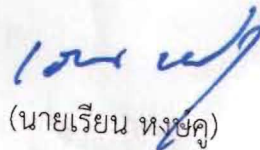 (นายเรียน หงษ์คู)